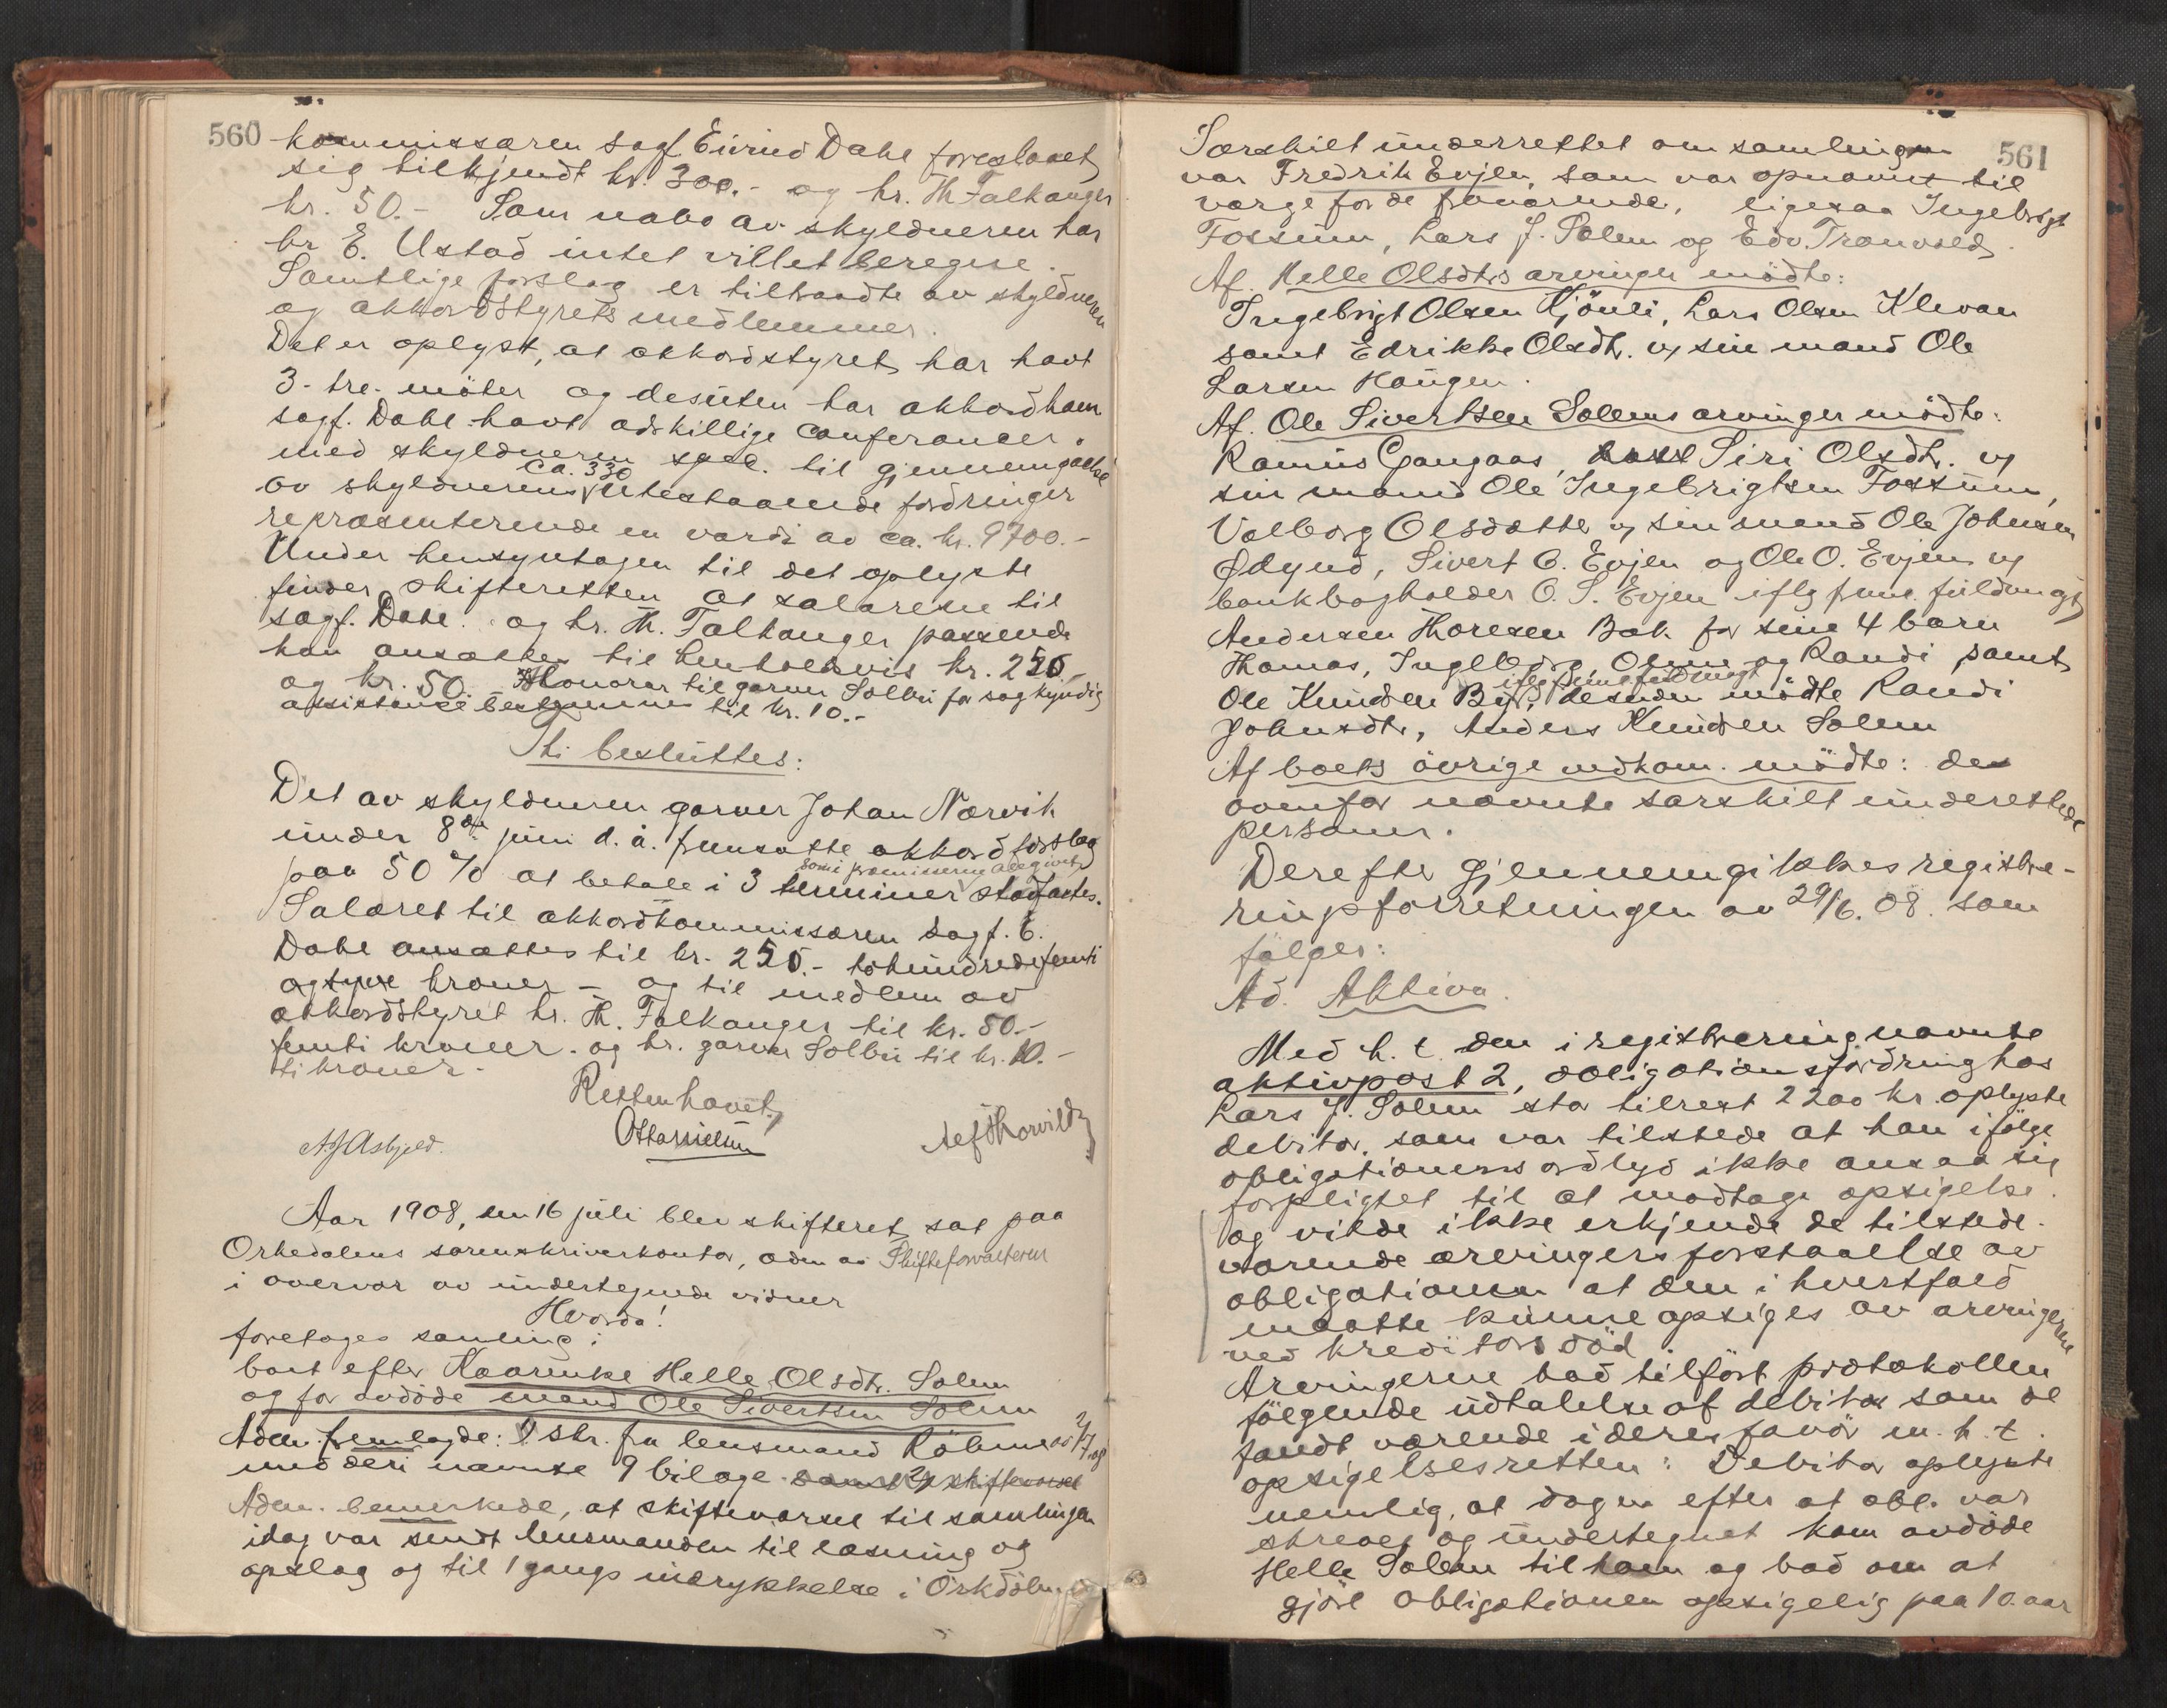 560
kommissæren sagf. Eivind Dahl foreslaaet
sig tilkjendt kr. 300.- og hr. Th. Falkanger
kr. 50.- Som nabo av skyldneren har
hr E. Ustad intet villet beregne.
Samtlige forslag er tiltraadte av skyldneren
og akkordstyrets medlemmer.
Det er oplyst, at akkordstyret har havt
3- tre- möter og desuten har akkordkom.
sagf. Dahl havt adskillige conferancer
med skyldneren spec. til gjennemgaaelse
av skyldnerens ca. 330 utestaaende fordringer
repræsenterende en værdi av ca. kr. 9700.-
Under hensyntagen til det oplyste
finder skifteretten at salærene til
sagf. Dahl og hr. Th. Falkanger passende
kan ansættes til henholdsvis kr. 250.-
og kr. 50. Honorar til garver Solbu for sagkyndig
assistance bestemmes til kr. 10.-
Thi besluttes:
Det av skyldneren garver Johan Nærvik
under 8de juni d. å. fremsatte akkordforslag
paa 50 % at betale i 3 terminer som i præmisserne angivet stadfæstes.
Salæret til akkordkommissæren sagf. E.
Dahl ansættes til kr. 250.- tohundredefemti
ogtyve kroner - og til medlem av
akkordstyret hr. Th. Falkanger til kr. 50.-
femti kroner. og hr. garver Solbu til kr. 10.-
ti kroner.-
Retten hævet
Aar 1908, den 16 juli blev skifteret sat paa
Orkedalens sorenskriverkontor, adm. av Skifteforvalteren
i overvær av undertegnede vidner
Hvorda!
foretoges samling i
boet efter Kaarenke Helle Olsdtr. Solem
og før avdöde mand Ole Sivertsen Solem
Adm. fremlagde: 1 skr. fra lensmand Röhme av 2/7.08
med deri nævnte 9 bilage samt 2 skiftevarsel
Adm. bemerkede, at skiftevarsel til samlingen
idag var sendt lensmanden til læsning og
opslag og til 1 gangs indrykkelse i Orkdölen
561
Særskilt underrettet om samlingen
var Fredrik Evjen, som var opnævnt til
værge for de fraværende, ligesaa Ingebrigt
Fossum, Lars J. Solem og Edv. Tranvold.
Af Helle Olsdtrs arvinger mödte:
Ingebrigt Olsen Kjönli, Lars Olsen Klevan
samt Edrikke Olsdtr. v/ sin mand Ole
Larsen Haugen.
Af Ole Sivertsen Solems arvinger mödte:
Rasmus Gangaas, samt Siri Olsdtr. v/
sin mand Ole Ingebrigtsen Fossum,
Valborg Olsdatter v/ sin mand Ole Johnsen
Ødegrd, Sivert O. Evjen og Ole O. Evjen v/
bankbogholder O. S. Evjen iflg frem. fuldmagt
Andersen Thoresen Bak for sine 4 barn
Thomas, Ingeborg, Oline og Randi samt
Ole Knudsen By iflg fremt fuldmagt, desuden mödte Randi
Johnsdtr, Anders Knudsen Solem
Af boets övrige vedkom. mödte: de
ovenfor nævnte særskilt underettede
personer.
Derefter gjennemgikkes registre-
ringsforretningen av 29/6. 08. som
fölger:
Ad. Aktiva.
Med h. t. den i registrering nævnte
aktivpost 2, obligationsfordring hos
Lars J. Solem stor tilrest 2200 kr. oplyste
debitor, som var tilstede at han ifölge
obligationens ordlyd ikke ansaa sig
forpligtet til at modtage opsigelse.
og vilde ikke erkjende de tilstede-
værende arvingers forstaaelse av
obligationen at den i hvertfald
maatte kunne opsiges av arvingerne
ved kreditors död.
Arvingerne bad tilfört protokollen
fölgende udtalelse af debitor som de
fandt værende i deres favör m. h. t.
opsigelsesretten: Debitor oplyste
nemlig, at dagen efter at obl. var
skrevet og undertegnet kom avdöde
Helle Solem til ham og bad om at
gjöre obligationen opsigelig paa 10 aar